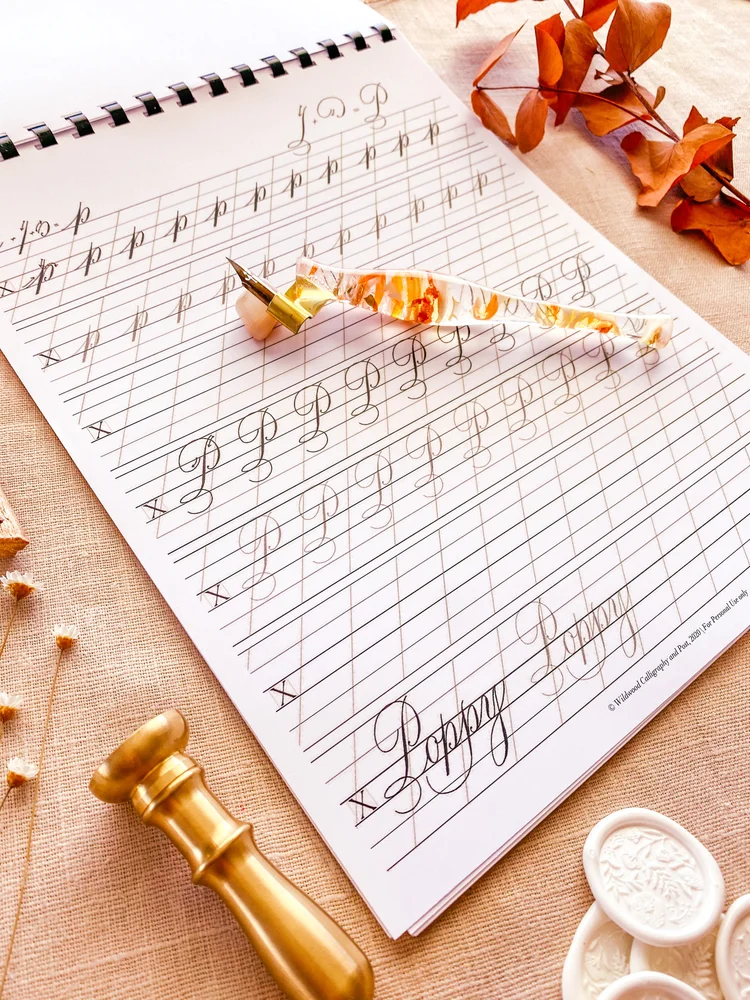 P
p
x p p p p p p p p p p p
x p p p p p p p p p p
x
x P P P P P P P P P
x P P P P P P P P
x
x Poppy Poppy
© Wildwood Calligraphy and Post, 2020 | For Personal Use only